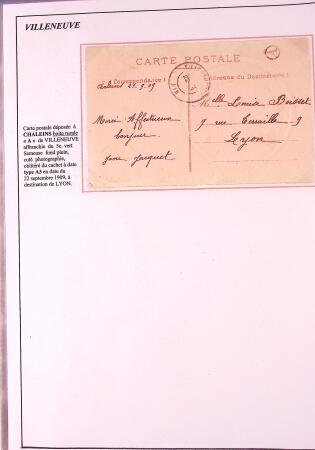 VILLENEUVE
Carte postale déposée à
CHALEINS boîte rurale
« A » de VILLENEUVE
affranchie du 5c. vert
Semeuse fond plein,
coté photographie,
oblitéré du cachet à date
type A3 en date du
22 septembre 1909, à
destination de LYON.
CARTE POSTALE
Correspondance
Adresse du Destinataire
Chaleins 22.9.09
Melle Louisa Boisset
9 rue Terraille 9
Lyon
Merci Affectueux
bonjour
Jane Jacquet